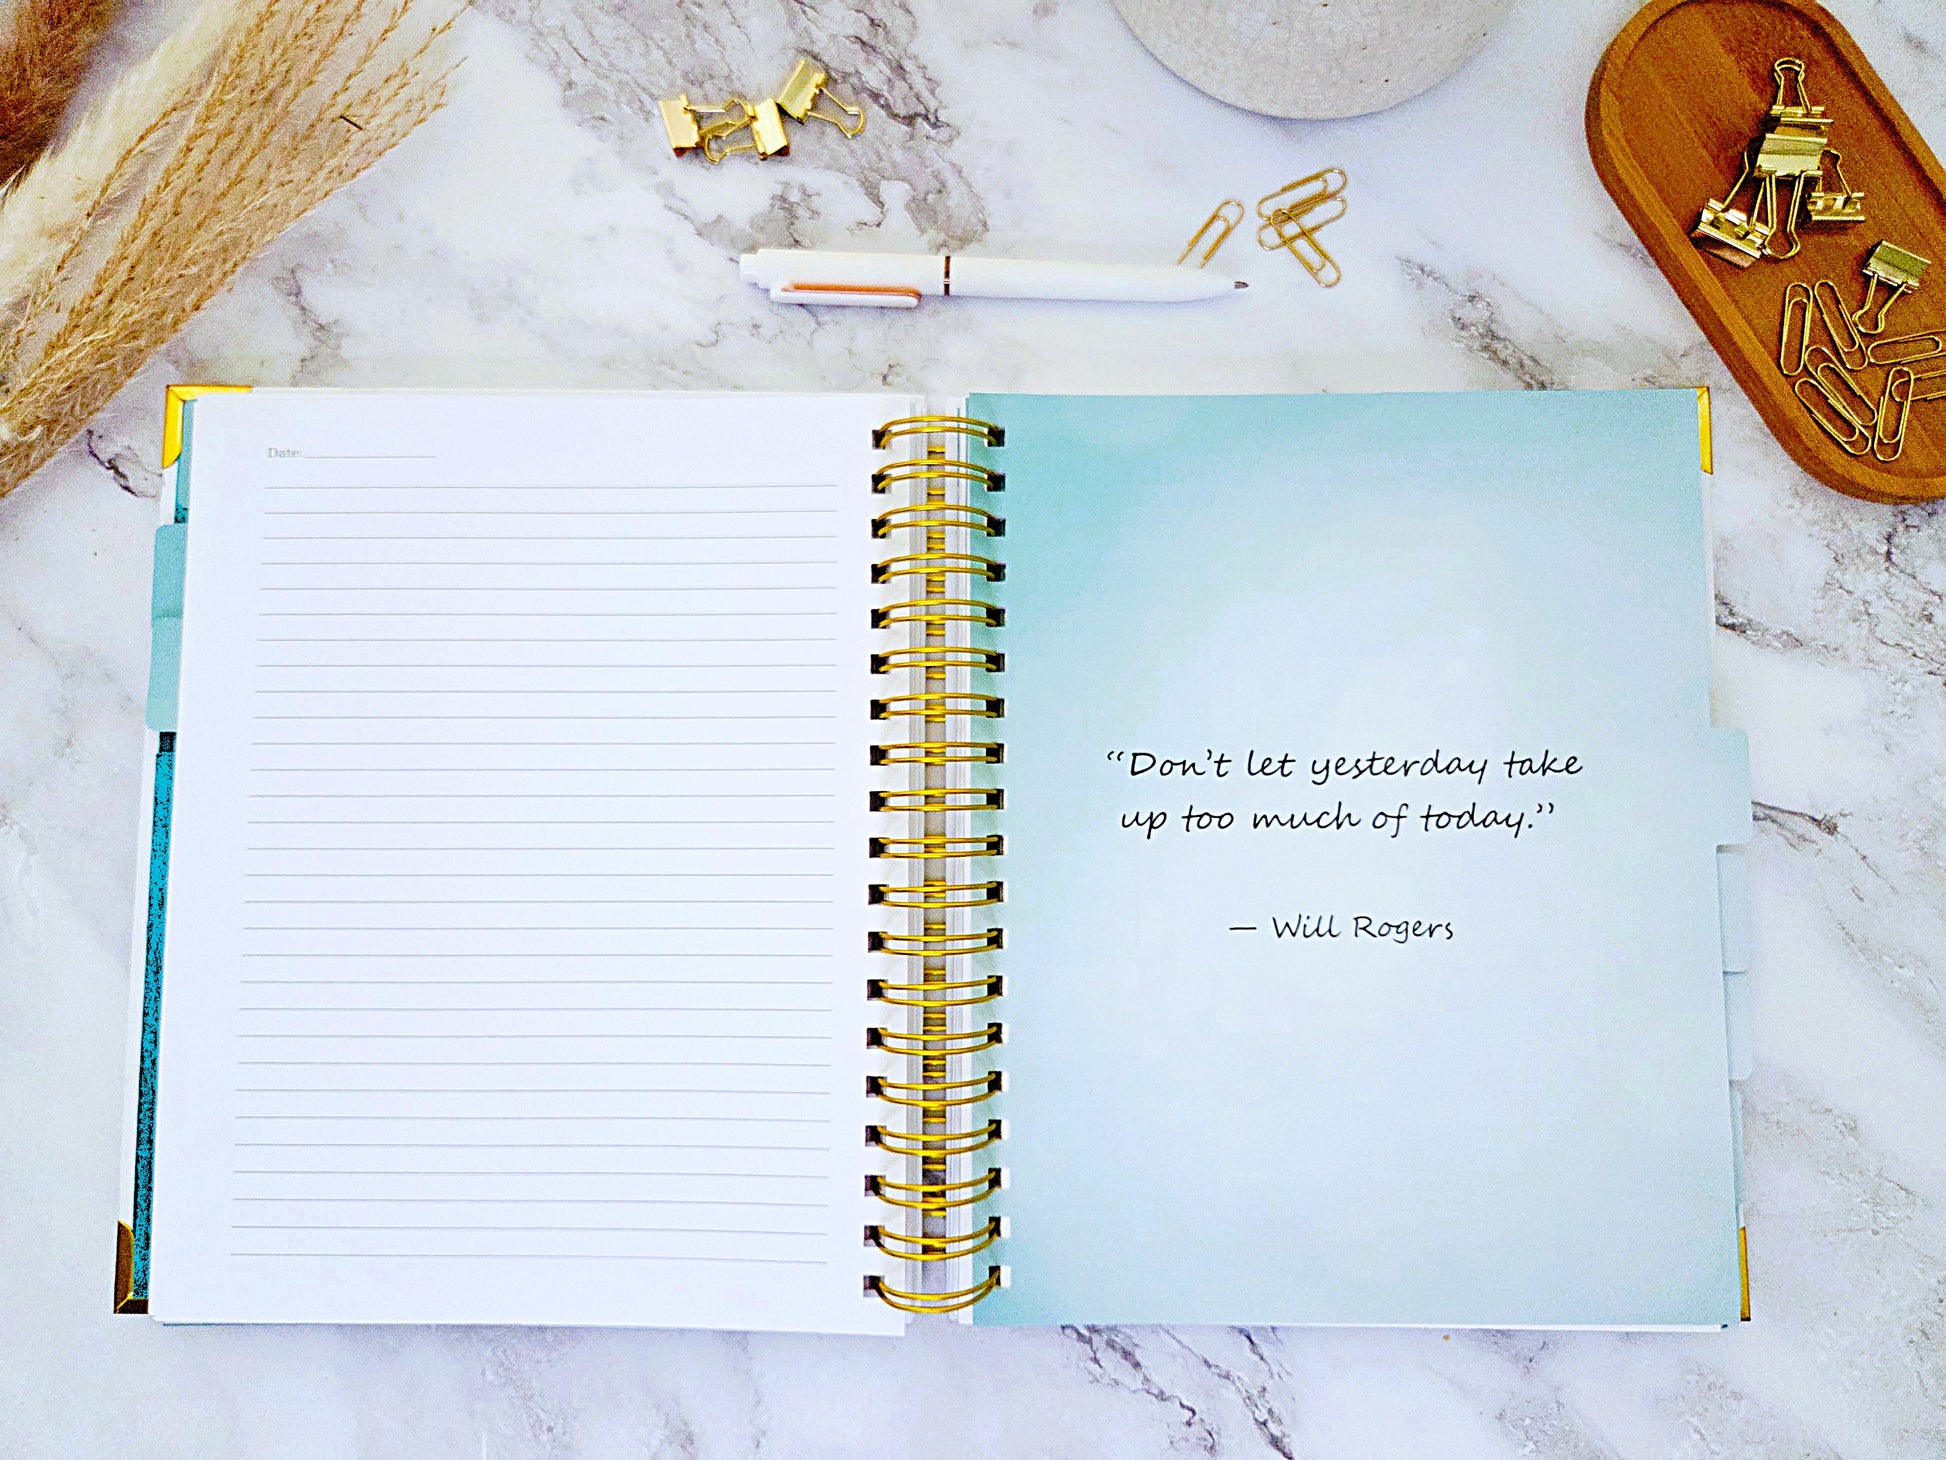 Date:
“Don’t let yesterday take
up too much of today.”
— Will Rogers